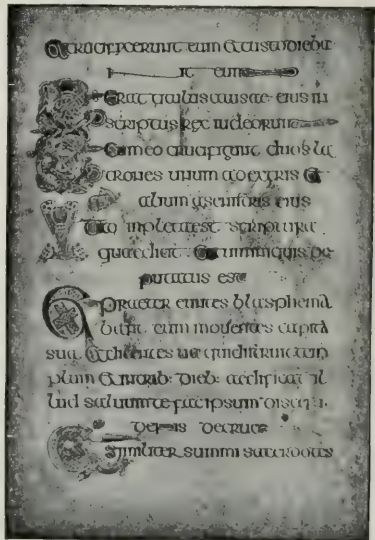 eum et custodieba
nt eum
Et erat titulus causae eius in
scriptus rex iudeorum
Et cum eo crucifigunt duos la
trones unum a dextris et
alium a sinistris eius
scriptura
quae dicit et cum iniquis de
putatus est
Et praeter euntes blasphema
bant eum mouentes capita
sua et dicentes
plum et in trib: dieb: aedificat il
lud saluum te fac ipsum
decruce
similiter summi sacerdotes